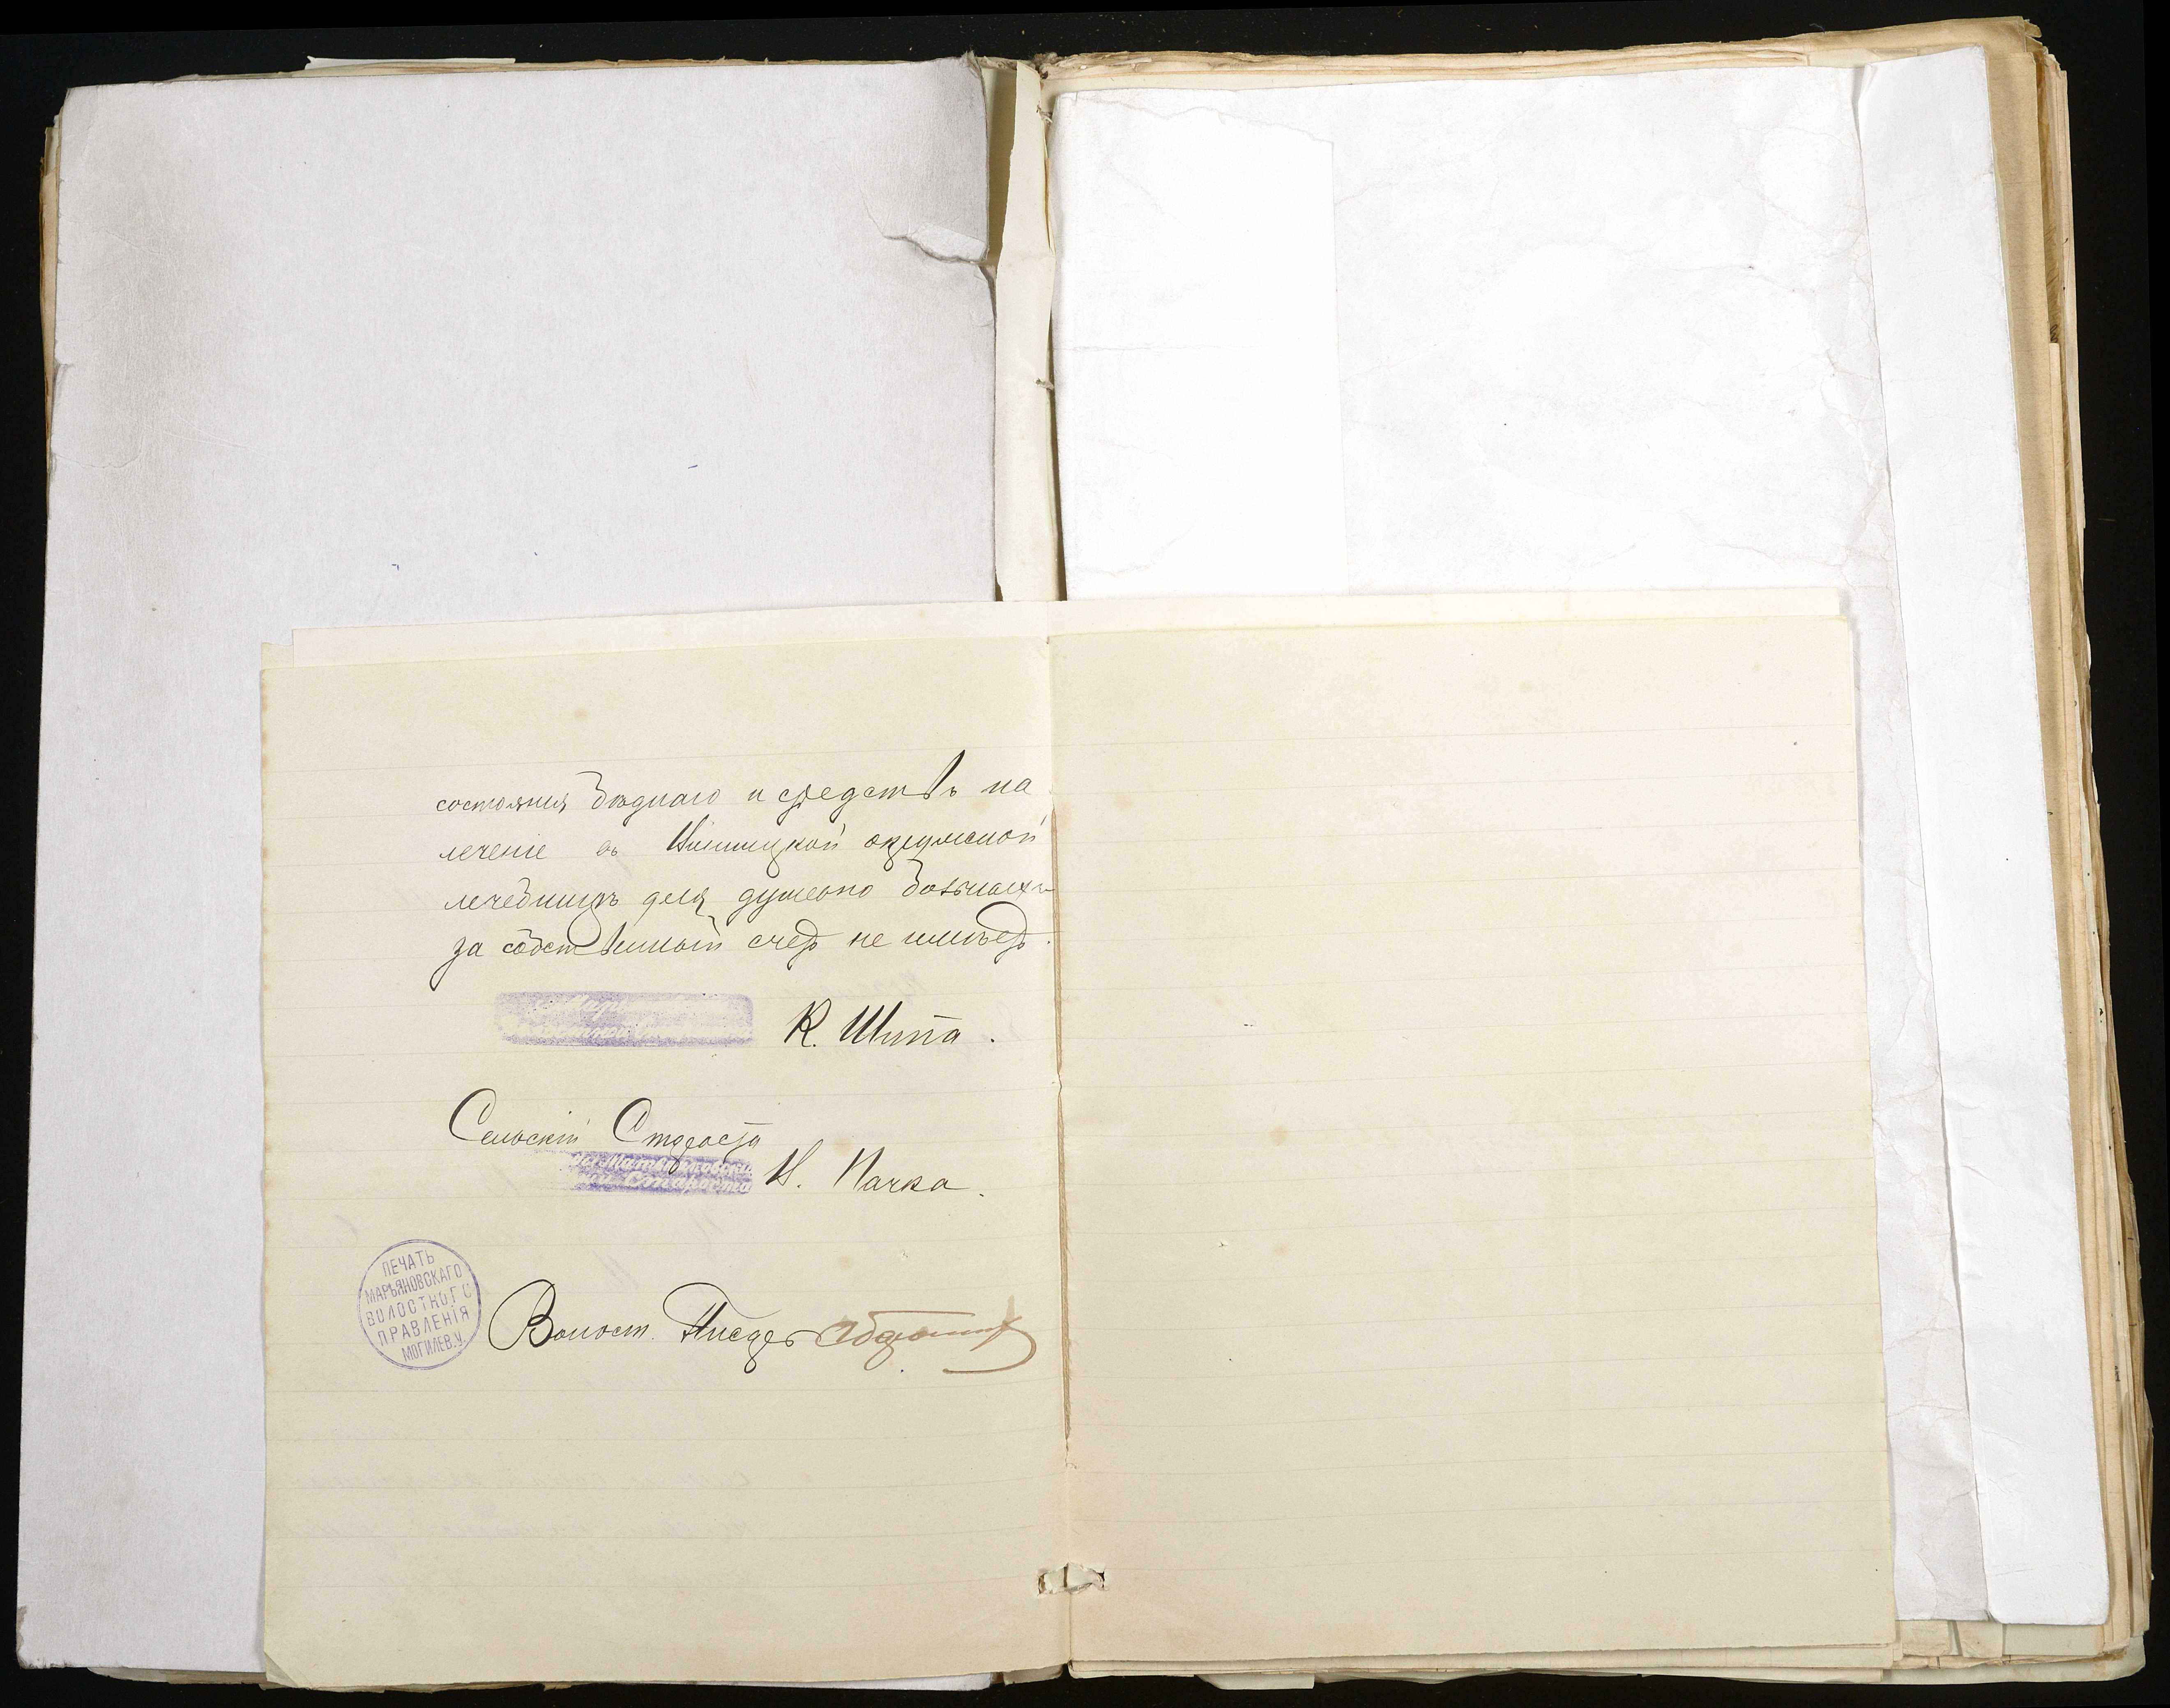 состоянія бѣднаго и средствъ на
леченіе въ Винницкой окружной
лечебницѣ для душевно больныхъ
за собственный счетъ не имѣетъ.
К. Шипа.
Сельскій Староста
Староста
Н. Пачка.
ПЕЧАТЬ
МАРЬЯНОВСКАГО
ВОЛОСТНОГО
ПРАВЛЕНІЯ
МОГИЛЕВ.У.
Волост. Писарь